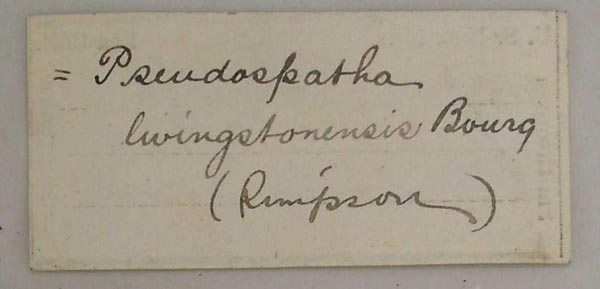 = Pseudospatha
livingstonensis Bourg
(Simpson)